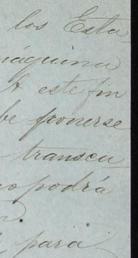 los Esta
máquina
A este fin
be ponerse
transcu
podrá
para